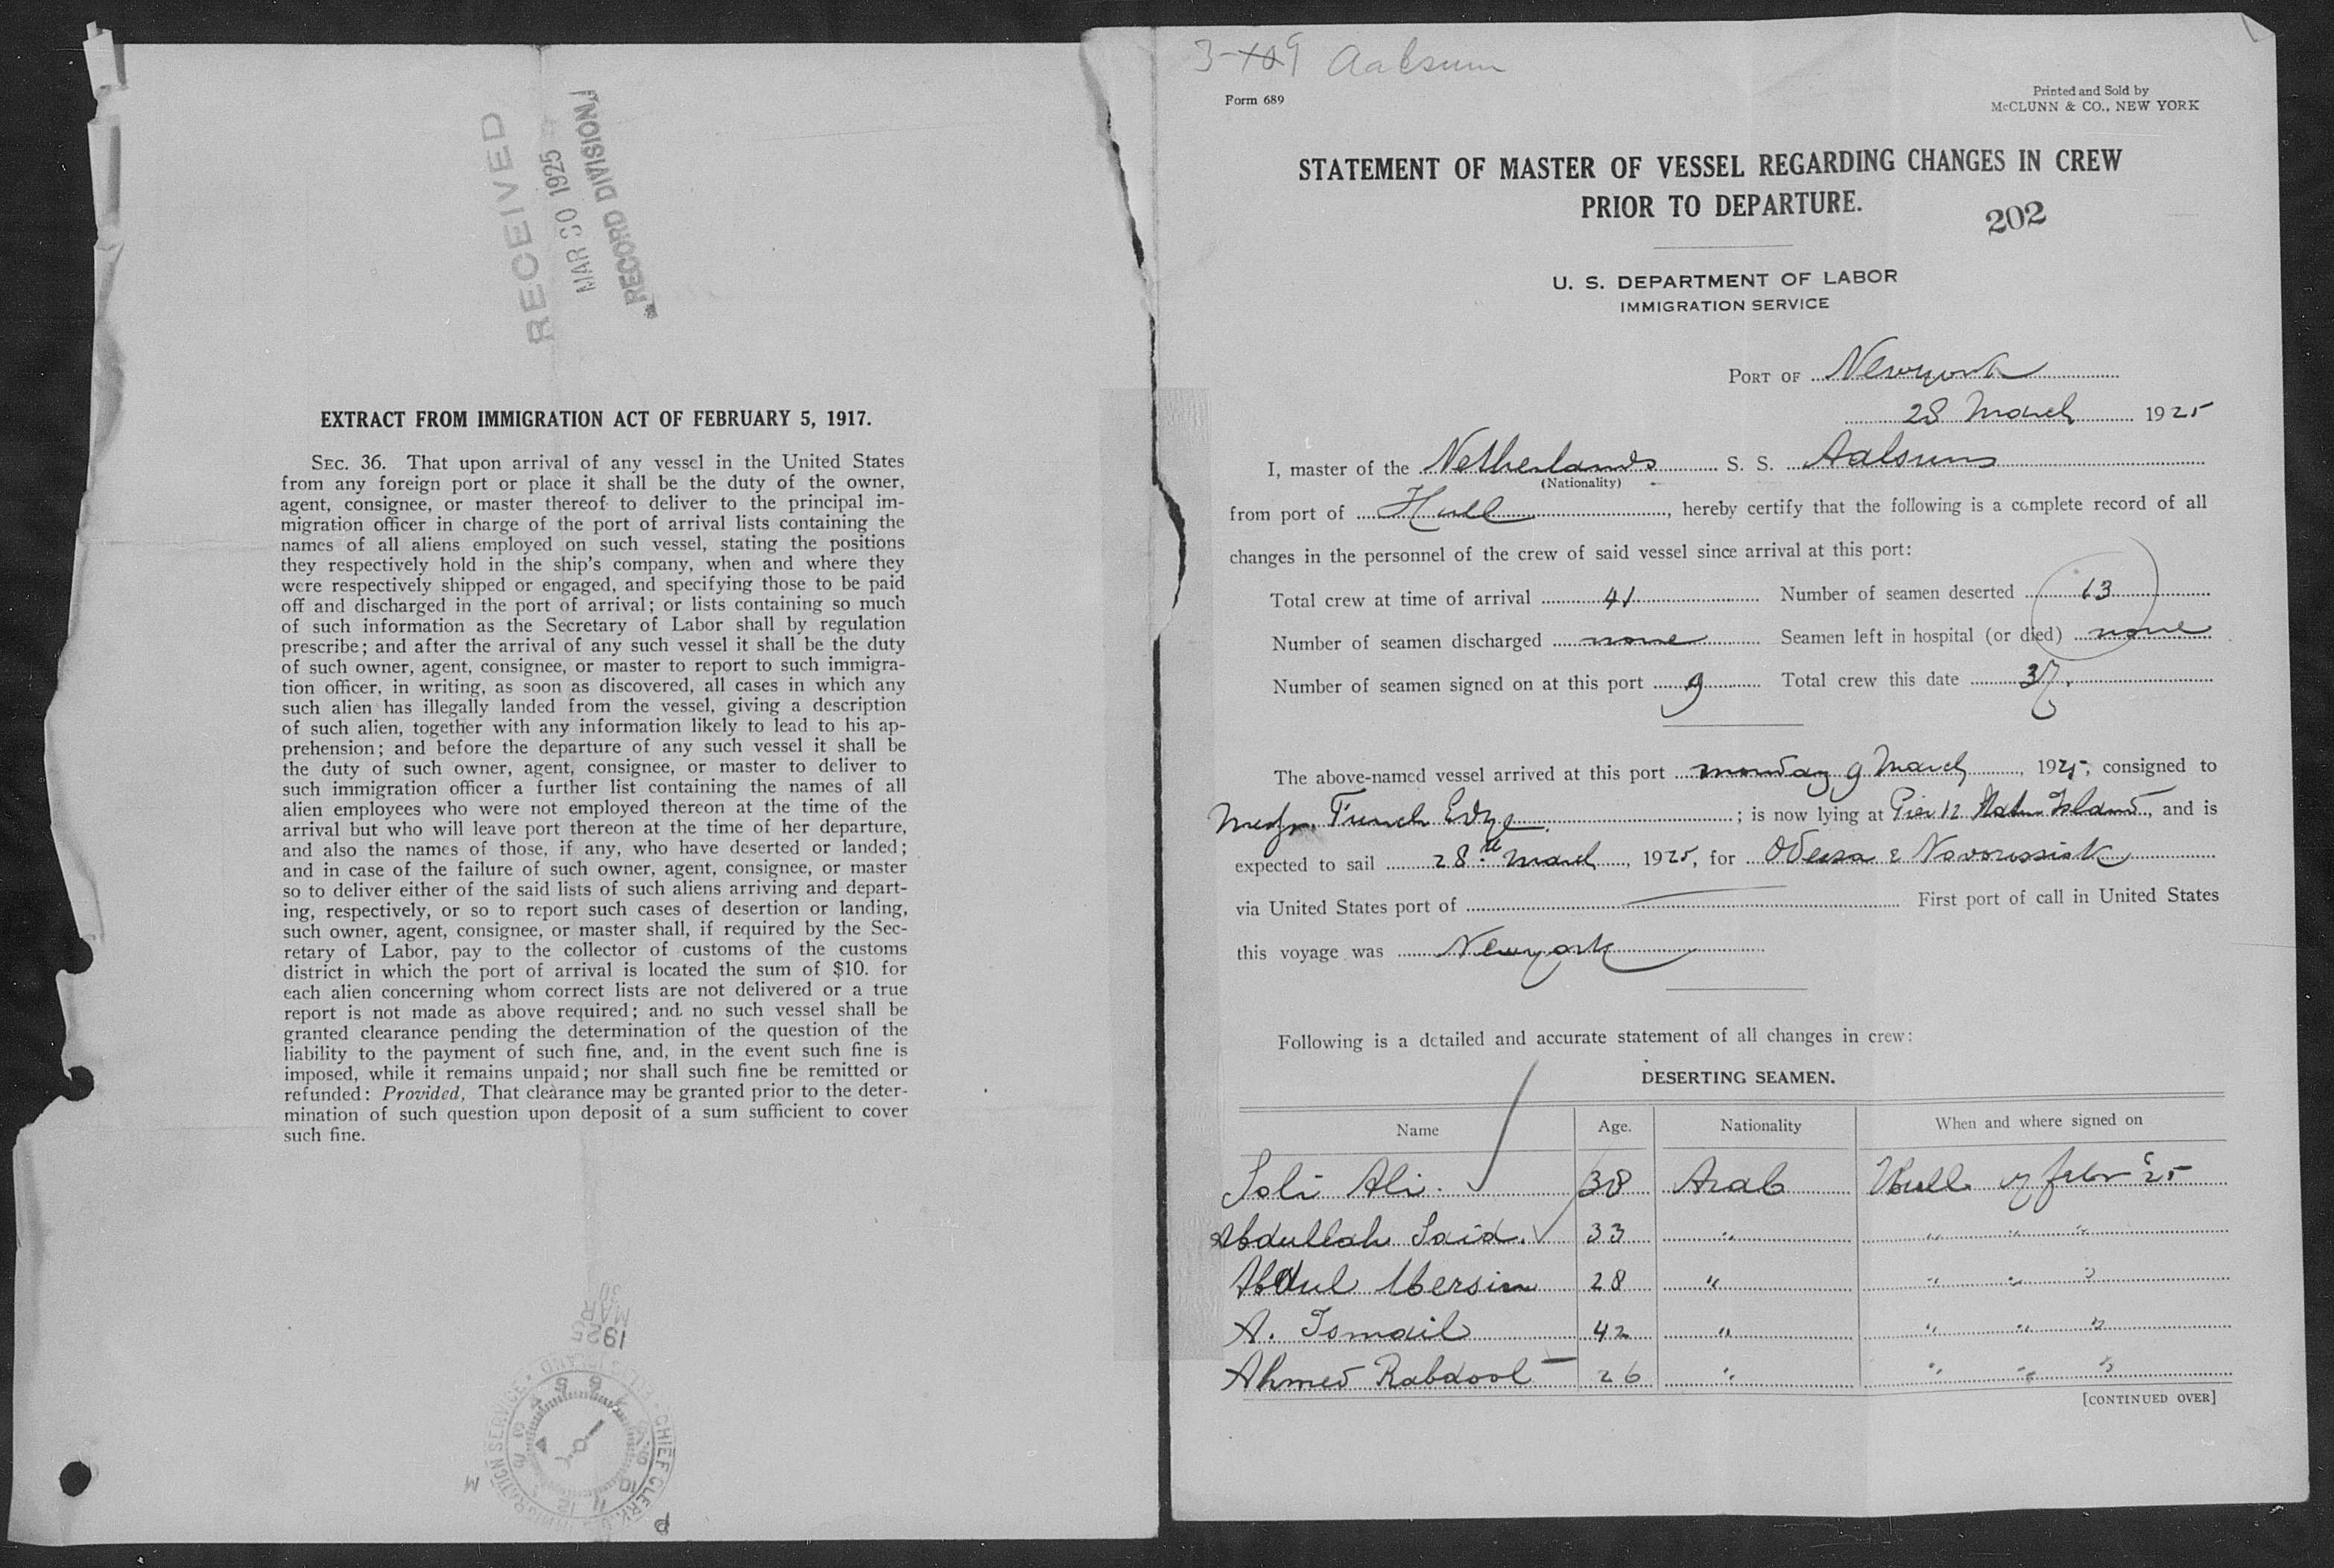 RECEIVED
MAR 30 1925
RECORD DIVISION
EXTRACT FROM IMMIGRATION ACT OF FEBRUARY 5, 1917.
SEC. 36. That upon arrival of any vessel in the United States
from any foreign port or place it shall be the duty of the owner,
agent, consignee, or master thereof to deliver to the principal im-
migration officer in charge of the port of arrival lists containing the
names of all aliens employed on such vessel, stating the positions
they respectively hold in the ship's company, when and where they
were respectively shipped or engaged, and specifying those to be paid
off and discharged in the port of arrival; or lists containing so much
of such information as the Secretary of Labor shall by regulation
prescribe; and after the arrival of any such vessel it shall be the duty
of such owner, agent, consignee, or master to report to such immigra-
tion officer, in writing, as soon as discovered, all cases in which any
such alien has illegally landed from the vessel, giving a description
of such alien, together with any information likely to lead to his ap-
prehension; and before the departure of any such vessel it shall be
the duty of such owner, agent, consignee, or master to deliver to
such immigration officer a further list containing the names of all
alien employees who were not employed thereon at the time of the
arrival but who will leave port thereon at the time of her departure,
and also the names of those, if any, who have deserted or landed;
and in case of the failure of such owner, agent, consignee, or master
so to deliver either of the said lists of such aliens arriving and depart-
ing, respectively, or so to report such cases of desertion or landing,
such owner, agent, consignee, or master shall, if required by the Sec-
retary of Labor, pay to the collector of customs of the customs
district in which the port of arrival is located the sum of $10. for
each alien concerning whom correct lists are not delivered or a true
report is not made as above required; and no such vessel shall be
granted clearance pending the determination of the question of the
liability to the payment of such fine, and, in the event such fine is
imposed, while it remains unpaid; nor shall such fine be remitted or
refunded: Provided, That clearance may be granted prior to the deter-
mination of such question upon deposit of a sum sufficient to cover
such fine.
1925
MAR
30
CHIEF CLERK
Aalsum
Form 689
Printed and Sold by
McCLUNN & CO., NEW YORK
STATEMENT OF MASTER OF VESSEL REGARDING CHANGES IN CREW
PRIOR TO DEPARTURE.
202
U. S. DEPARTMENT OF LABOR
IMMIGRATION SERVICE
PORT OF Newyork
28 March 1925
I, master of the Netherlands S. S. Aalsum
(Nationality)
from port of Hull, hereby certify that the following is a complete record of all
changes in the personnel of the crew of said vessel since arrival at this port:
Total crew at time of arrival 41 Number of seamen deserted 13
Number of seamen discharged none Seamen left in hospital (or died) none
Number of seamen signed on at this port 9 Total crew this date 37.
The above-named vessel arrived at this port monday 9 March, 1925, consigned to
Funch Edye; is now lying at Pier 12 Staten Island, and is
expected to sail 28th March, 1925, for Odessa & Novorossisk
via United States port of First port of call in United States
this voyage was Newyork
Following is a detailed and accurate statement of all changes in crew:
DESERTING SEAMEN.
Name Age. Nationality When and where signed on
Soli Ali. 38 Arab Hull 7 febr '25
Abdullah Said. 33 " " "
Abdul Mersin 28 " " " "
A. Ismail 42 " " " "
Ahmed Rabdool 26 " " " "
[CONTINUED OVER]